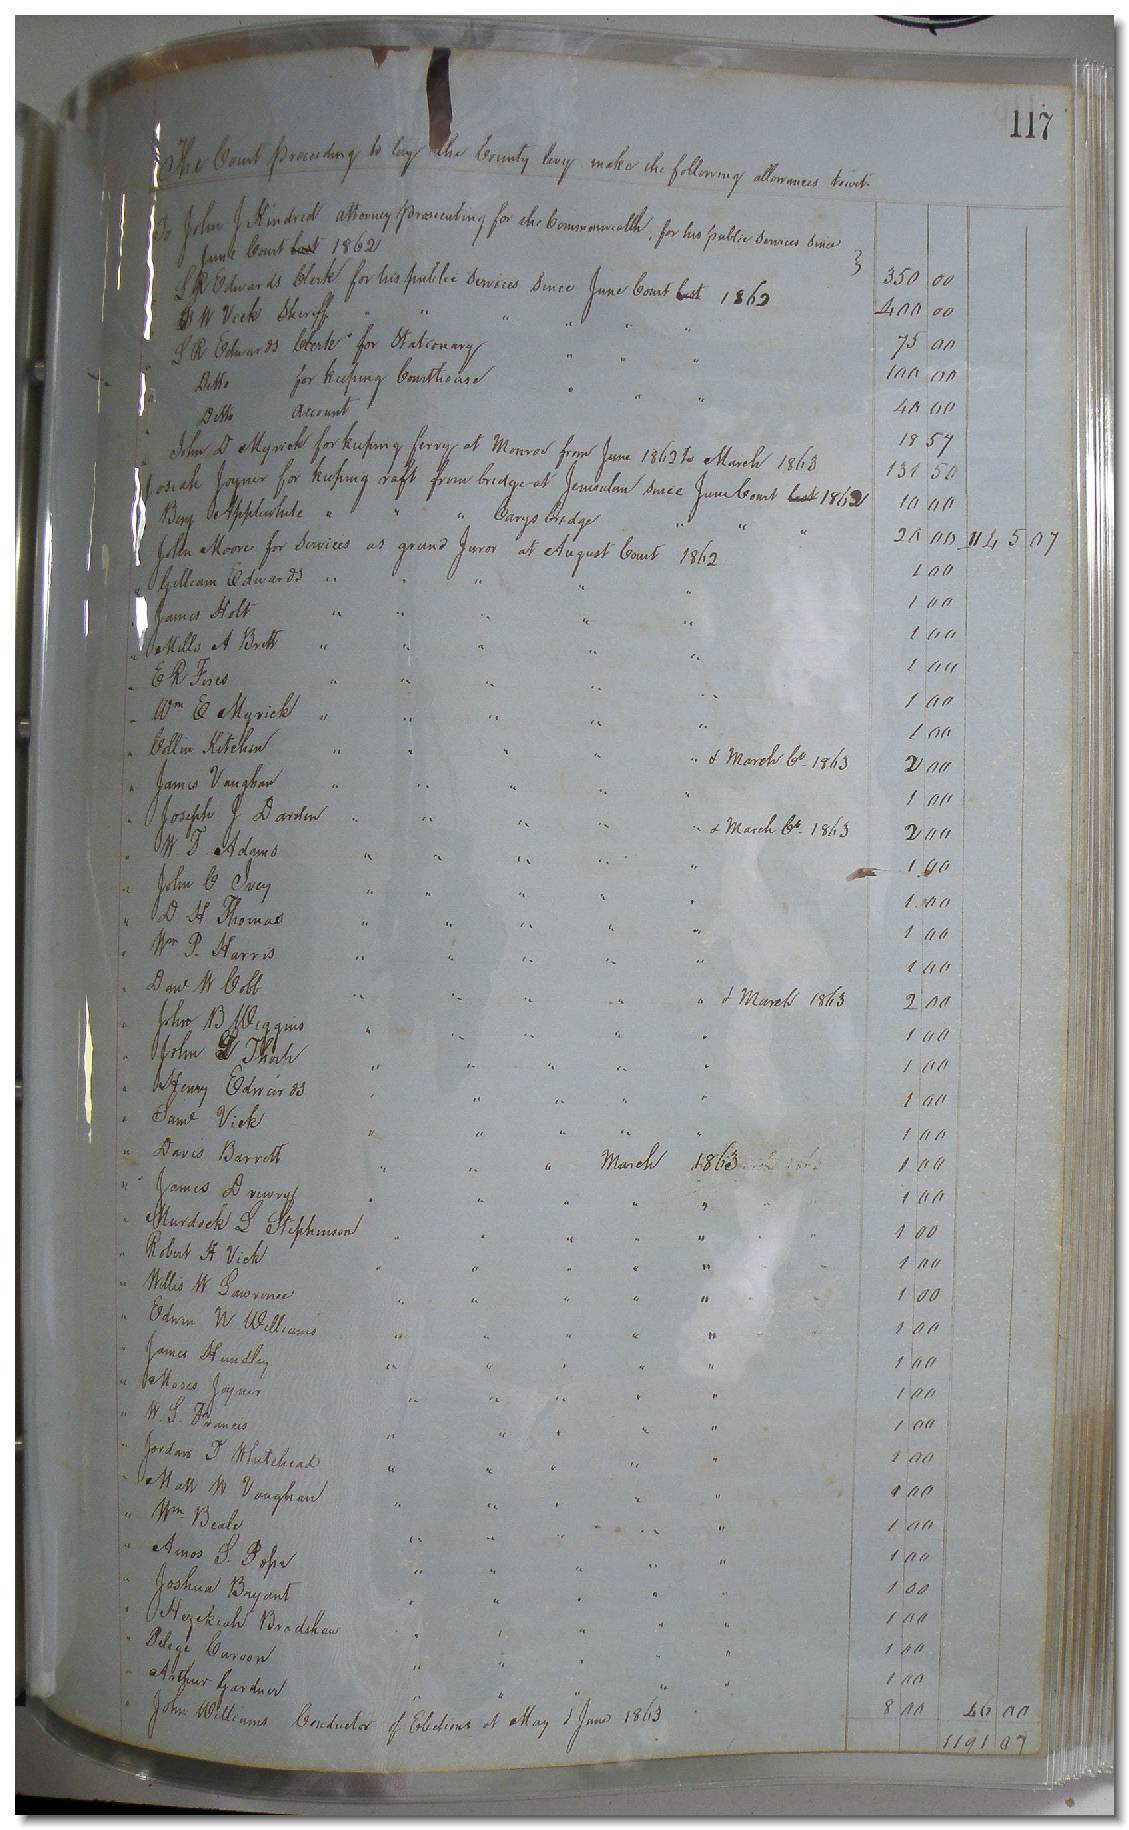 117
The Court proceeding to lay the County levy make the following allowances towit.
To John J Kindred attorney prosecuting for the Commonwealth, for his public services since
June Court last 1862 } 350 00
" L R Edwards Clerk for his public services since June Court last 1862 400 00
" W Vick Sheriff " " " " " " 75 00
" L R Edwards Clerk for Stationary " " " 100 00
" Ditto for keeping Courthouse " " " 40 00
" Ditto account 18 57
" John D Myrick for keeping ferry at Monroe from June 1862 to March 1863 131 50
Josiah Joyner for keeping raft from bridge at Jerusalem since June Court last 1862 10 00
Benj Applewhite " " " Carys bridge " " " 20 00 1145 07
John Moore for services as grand Juror at August Court 1862 1 00
" William Edwards " " " " " 1 00
" James Holt " " " " 1 00
" Mills A Britt " " " " " 1 00
" E R Fires " " " " 1 00
" Wm E Myrick " " " " 1 00
" Collin Kitchen " " " " " & March Ct 1863 2 00
" James Vaughan " " " " 1 00
" Joseph J Darden " " " " " & March Ct 1863 2 00
" W T Adams " " " " " 1 00
" John C Ivey " " " " " 1 00
" D H Thomas " " " " " 1 00
" Wm P. Harris " " " " " 1 00
" Danl W Cobb " " " " " & March 1863 2 00
" John B Wiggins " " " " " 1 00
" John Tharp " " " " " 1 00
" Henry Edwards " " " " 1 00
" Saml Vick " " " " " 1 00
" Davis Barrett " " " March 1863 1 00
" James Drewry " " " " " 1 00
" Murdock L Stephenson " " " " " 1 00
" Robert H Vick " " " " " 1 00
" Willis W Lawrence " " " " " 1 00
" Edwin W Williams " " " " " 1 00
" James Hundley " " " " " 1 00
" Moses Joyner " " " " " 1 00
" W. S. Francis " " " " 1 00
" Jordan T Whitehead " " " " " 1 00
" Matt W Vaughan " " " " " 1 00
" Wm Beale " " " " " 1 00
" Amos S. Pope " " " " " 1 00
" Joshua Bryant " " " " " 1 00
" Hezekiah Bradshaw " " " " " 1 00
" Pelege Carson " " " " " 1 00
" Arthur Gardner " " " " " 1 00
" John Williams Conductor of Elections at May & June 1863 8 00 46 00
1191 07